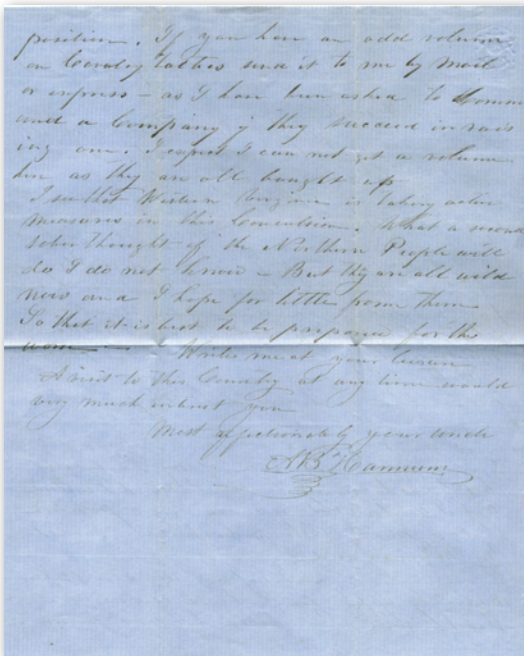 position. If you have an odd volume
on Cavalry tactics send it to me by mail
or express – as I have been asked to Comm
and a Company if they succeed in rais
ing one. I expect I can not get a volume
here as they are all bought up
I see that Western Virginia is taking active
measures in this Convulsion. What a second
sober thought of the Northern People will
do I do not know – But they are all wild
now and I hope for little from them
So that it is best to be prepared for the
Write me at your leisure
A visit to this Country at any time would
very much interest you
Most affectionately your uncle